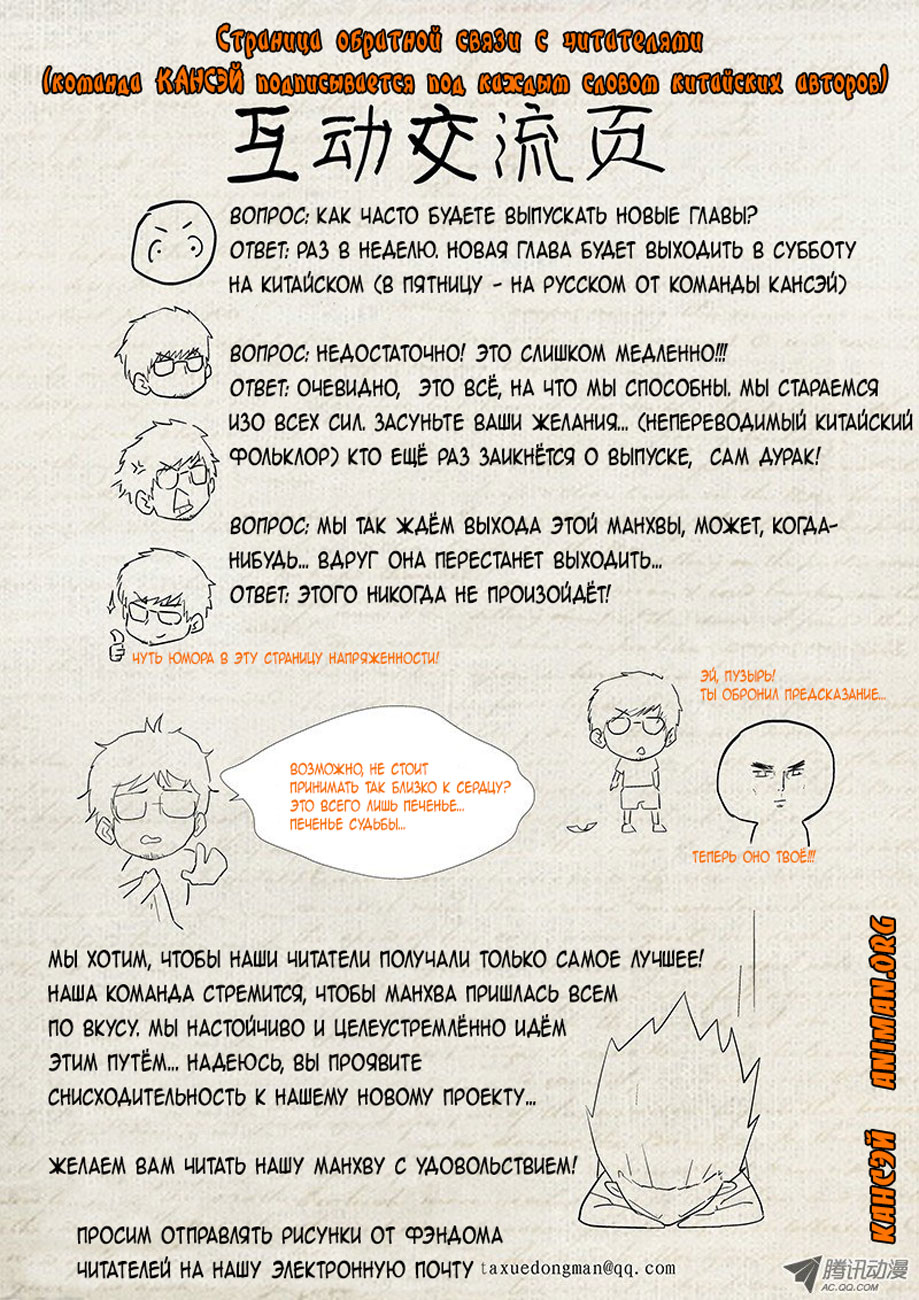 Страница обратной связи с читателями
(команда КАНСЭЙ подписывается под каждым словом китайских авторов)
互动交流页
ВОПРОС: КАК ЧАСТО БУДЕТЕ ВЫПУСКАТЬ НОВЫЕ ГЛАВЫ?
ОТВЕТ: РАЗ В НЕДЕЛЮ. НОВАЯ ГЛАВА БУДЕТ ВЫХОДИТЬ В СУББОТУ
НА КИТАЙСКОМ (В ПЯТНИЦУ - НА РУССКОМ ОТ КОМАНДЫ КАНСЭЙ)
ВОПРОС: НЕДОСТАТОЧНО! ЭТО СЛИШКОМ МЕДЛЕННО!!!
ОТВЕТ: ОЧЕВИДНО, ЭТО ВСЁ, НА ЧТО МЫ СПОСОБНЫ. МЫ СТАРАЕМСЯ
ИЗО ВСЕХ СИЛ. ЗАСУНЬТЕ ВАШИ ЖЕЛАНИЯ... (НЕПЕРЕВОДИМЫЙ КИТАЙСКИЙ
ФОЛЬКЛОР) КТО ЕЩЁ РАЗ ЗАИКНЁТСЯ О ВЫПУСКЕ, САМ ДУРАК!
ВОПРОС: МЫ ТАК ЖДЁМ ВЫХОДА ЭТОЙ МАНХВЫ, МОЖЕТ, КОГДА-
НИБУДЬ... ВДРУГ ОНА ПЕРЕСТАНЕТ ВЫХОДИТЬ...
ОТВЕТ: ЭТОГО НИКОГДА НЕ ПРОИЗОЙДЁТ!
ЧУТЬ ЮМОРА В ЭТУ СТРАНИЦУ НАПРЯЖЕННОСТИ!
ЭЙ, ПУЗЫРЬ!
ТЫ ОБРОНИЛ ПРЕДСКАЗАНИЕ...
ВОЗМОЖНО, НЕ СТОИТ
ПРИНИМАТЬ ТАК БЛИЗКО К СЕРДЦУ?
ЭТО ВСЕГО ЛИШЬ ПЕЧЕНЬЕ...
ПЕЧЕНЬЕ СУДЬБЫ...
ТЕПЕРЬ ОНО ТВОЁ!!!
МЫ ХОТИМ, ЧТОБЫ НАШИ ЧИТАТЕЛИ ПОЛУЧАЛИ ТОЛЬКО САМОЕ ЛУЧШЕЕ!
НАША КОМАНДА СТРЕМИТСЯ, ЧТОБЫ МАНХВА ПРИШЛАСЬ ВСЕМ
ПО ВКУСУ. МЫ НАСТОЙЧИВО И ЦЕЛЕУСТРЕМЛЁННО ИДЁМ
ЭТИМ ПУТЁМ... НАДЕЮСЬ, ВЫ ПРОЯВИТЕ
СНИСХОДИТЕЛЬНОСТЬ К НАШЕМУ НОВОМУ ПРОЕКТУ...
ЖЕЛАЕМ ВАМ ЧИТАТЬ НАШУ МАНХВУ С УДОВОЛЬСТВИЕМ!
ПРОСИМ ОТПРАВЛЯТЬ РИСУНКИ ОТ ФЭНДОМА
ЧИТАТЕЛЕЙ НА НАШУ ЭЛЕКТРОННУЮ ПОЧТУ taxuedongman@qq.com
КАНСЭЙ ANIMAN.ORG
腾讯动漫
AC.QQ.COM